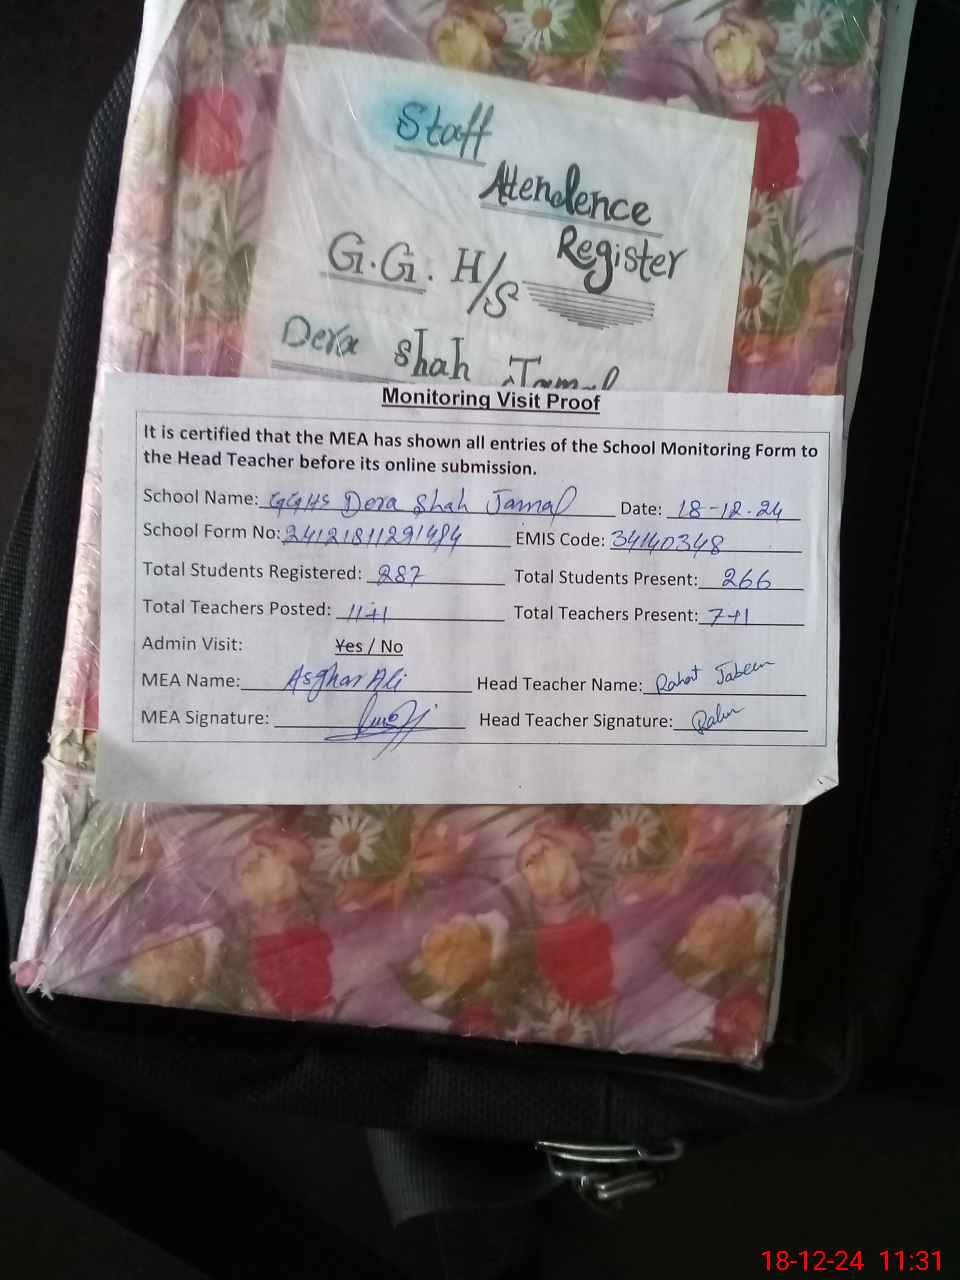 Staff
Attendence
Register
G.G. H/S
Dera Shah Jamal
Monitoring Visit Proof
It is certified that the MEA has shown all entries of the School Monitoring Form to
the Head Teacher before its online submission.
School Name: GGHS Dera Shah Jamal Date: 18-12-24
School Form No: 24121811291484 EMIS Code: 34140348
Total Students Registered: 287 Total Students Present: 266
Total Teachers Posted: 11+1 Total Teachers Present: 7+1
Admin Visit: Yes / No
MEA Name: Asghar Ali Head Teacher Name: Rahat Jabeen
MEA Signature: Head Teacher Signature:
18-12-24 11:31